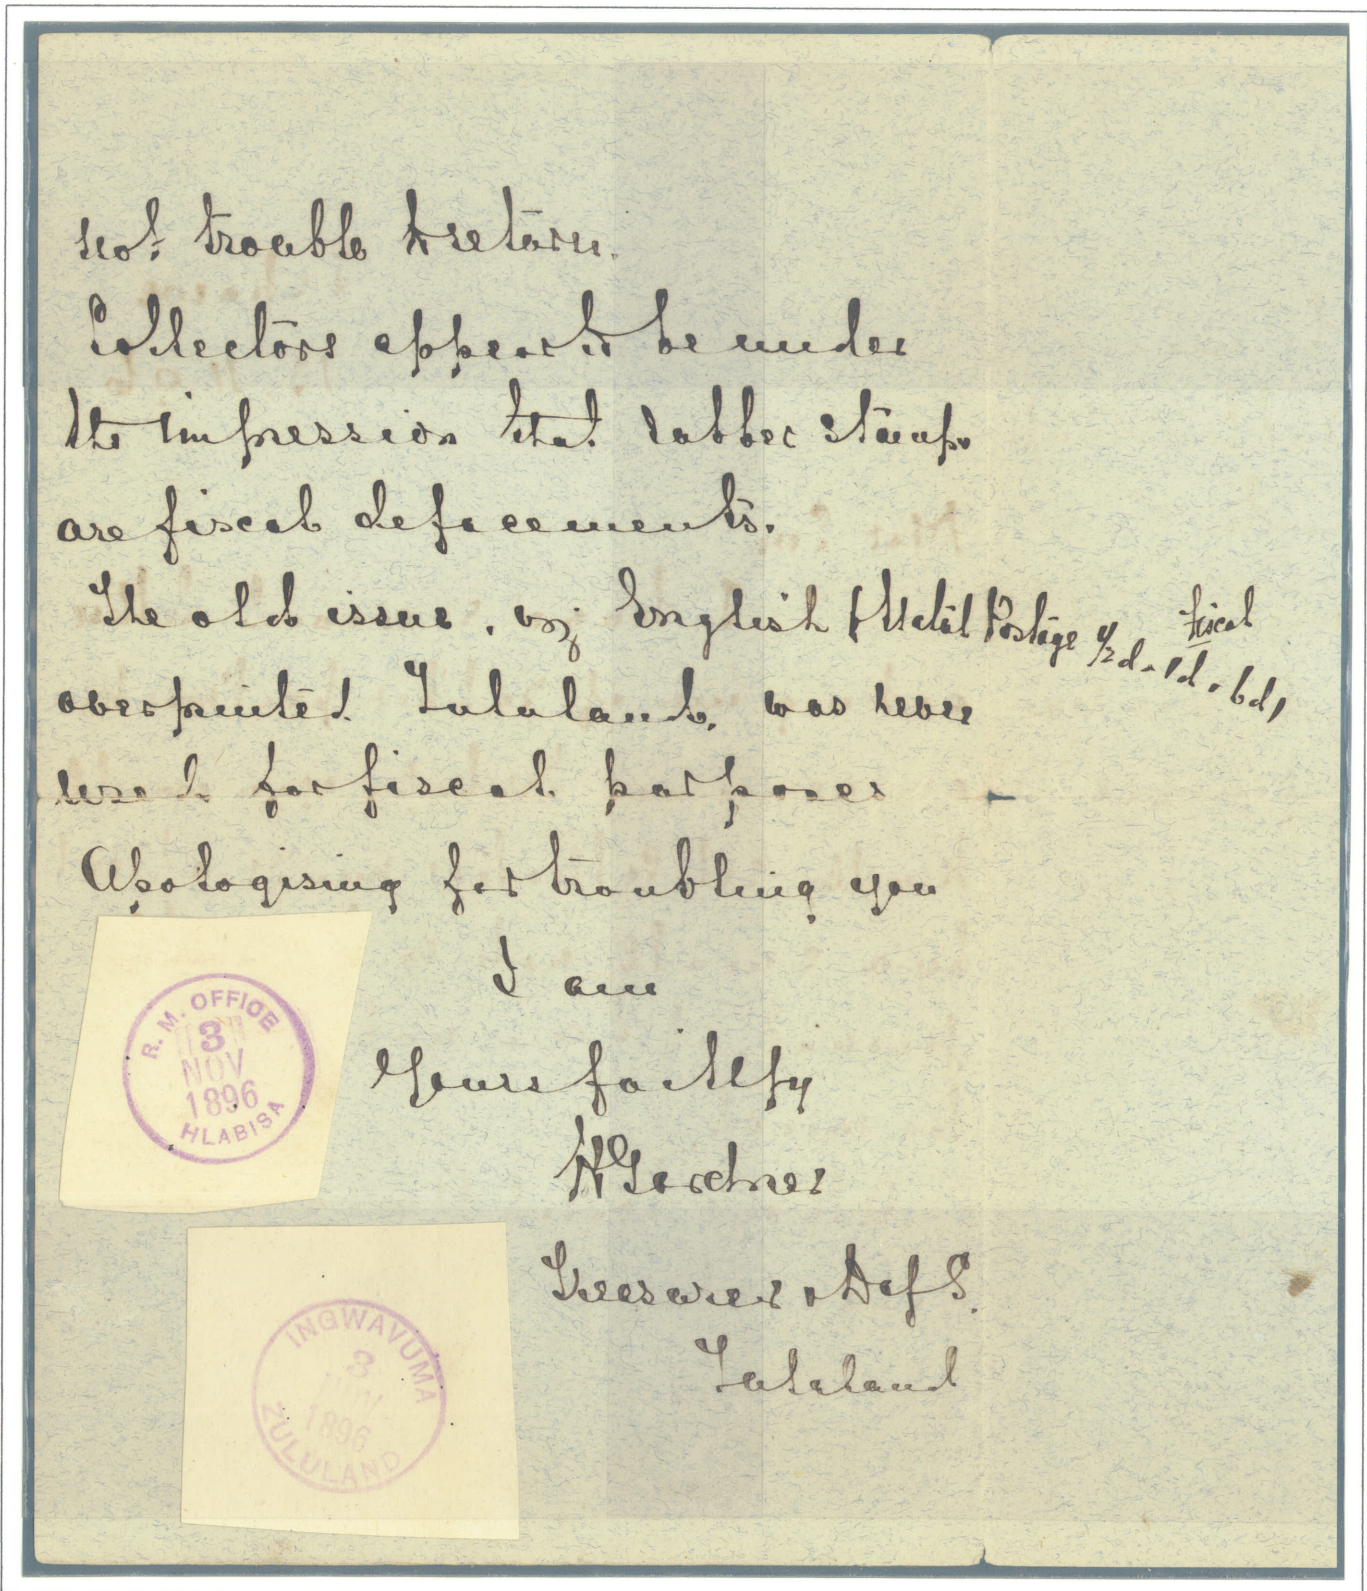 not trouble to return.
Collectors appear to be under
the impression that rubber stamps
are fiscal defacements.
The old issue, viz English & Natal Postage ½d. 1d. 6d, Fiscal
overprinted Zululand, was never
used for fiscal purposes
Apologising for troubling you
I am
Yours faithfy
Gardner
Treasurer
Zululand
R. M. OFFICE
3
NOV
1896
HLABISA
INGWAVUMA
3
NOV
1896
ZULULAND